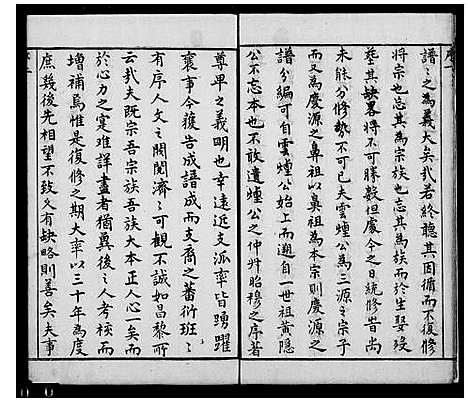 譜之為義大矣哉若終聽其因循而不復修
將宗也忘其為宗族也忘其為族而於生娶歿
塟其缺畧將不可勝數但慶今之日統修昔尚
未能分修勢不可已夫雲煙公為三源之宗子
而又為慶源之鼻祖以鼻祖為本宗則慶源之
譜分編可自雲煙公始上而遡自一世祖黃隱
公不忘本也不敢遺煙公之仲州昭穆之序著
尊卑之義明也幸遠近支派率皆踴躍
襄事今復告成譜成而支裔之蕃衍班〻
有序人文之開闊濟〻可觀不誠如昌黎所
云哉夫既宗吾宗族吾族大本正人心一矣而
於心力之寔难詳盡者猶冀後之人考核而
增補焉惟是復修之期大率以三十年為度
庶幾後先相望不致久有缺略則善矣夫事